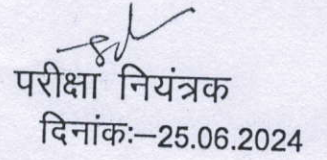 परीक्षा नियंत्रक
दिनांकः–25.06.2024